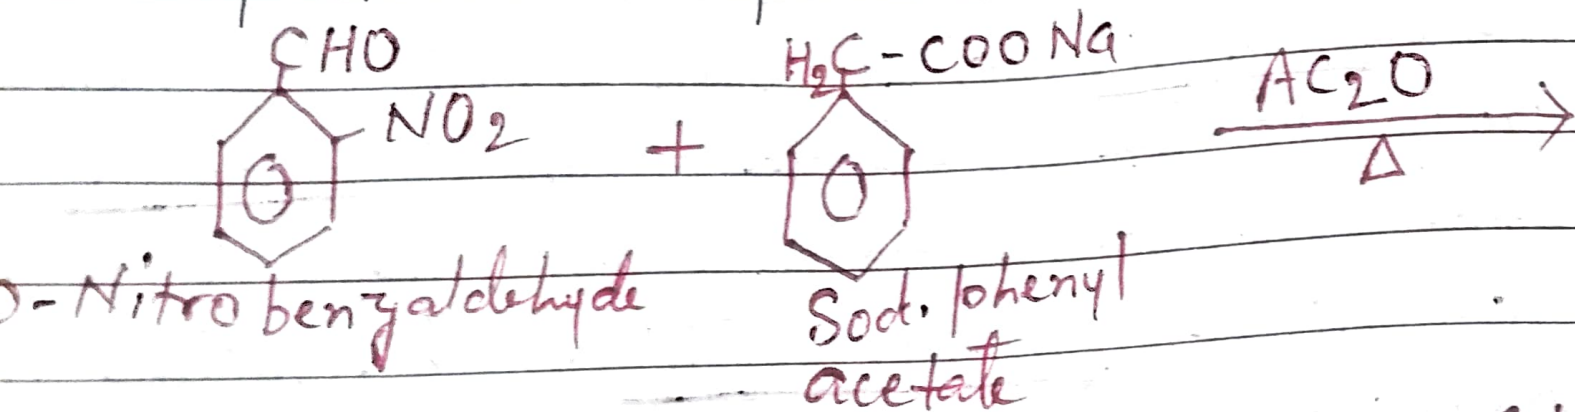 CHO H₂C-COONa AC₂O
NO₂ + Δ
O O
o-Nitrobenzaldehyde Sod. phenyl
acetate